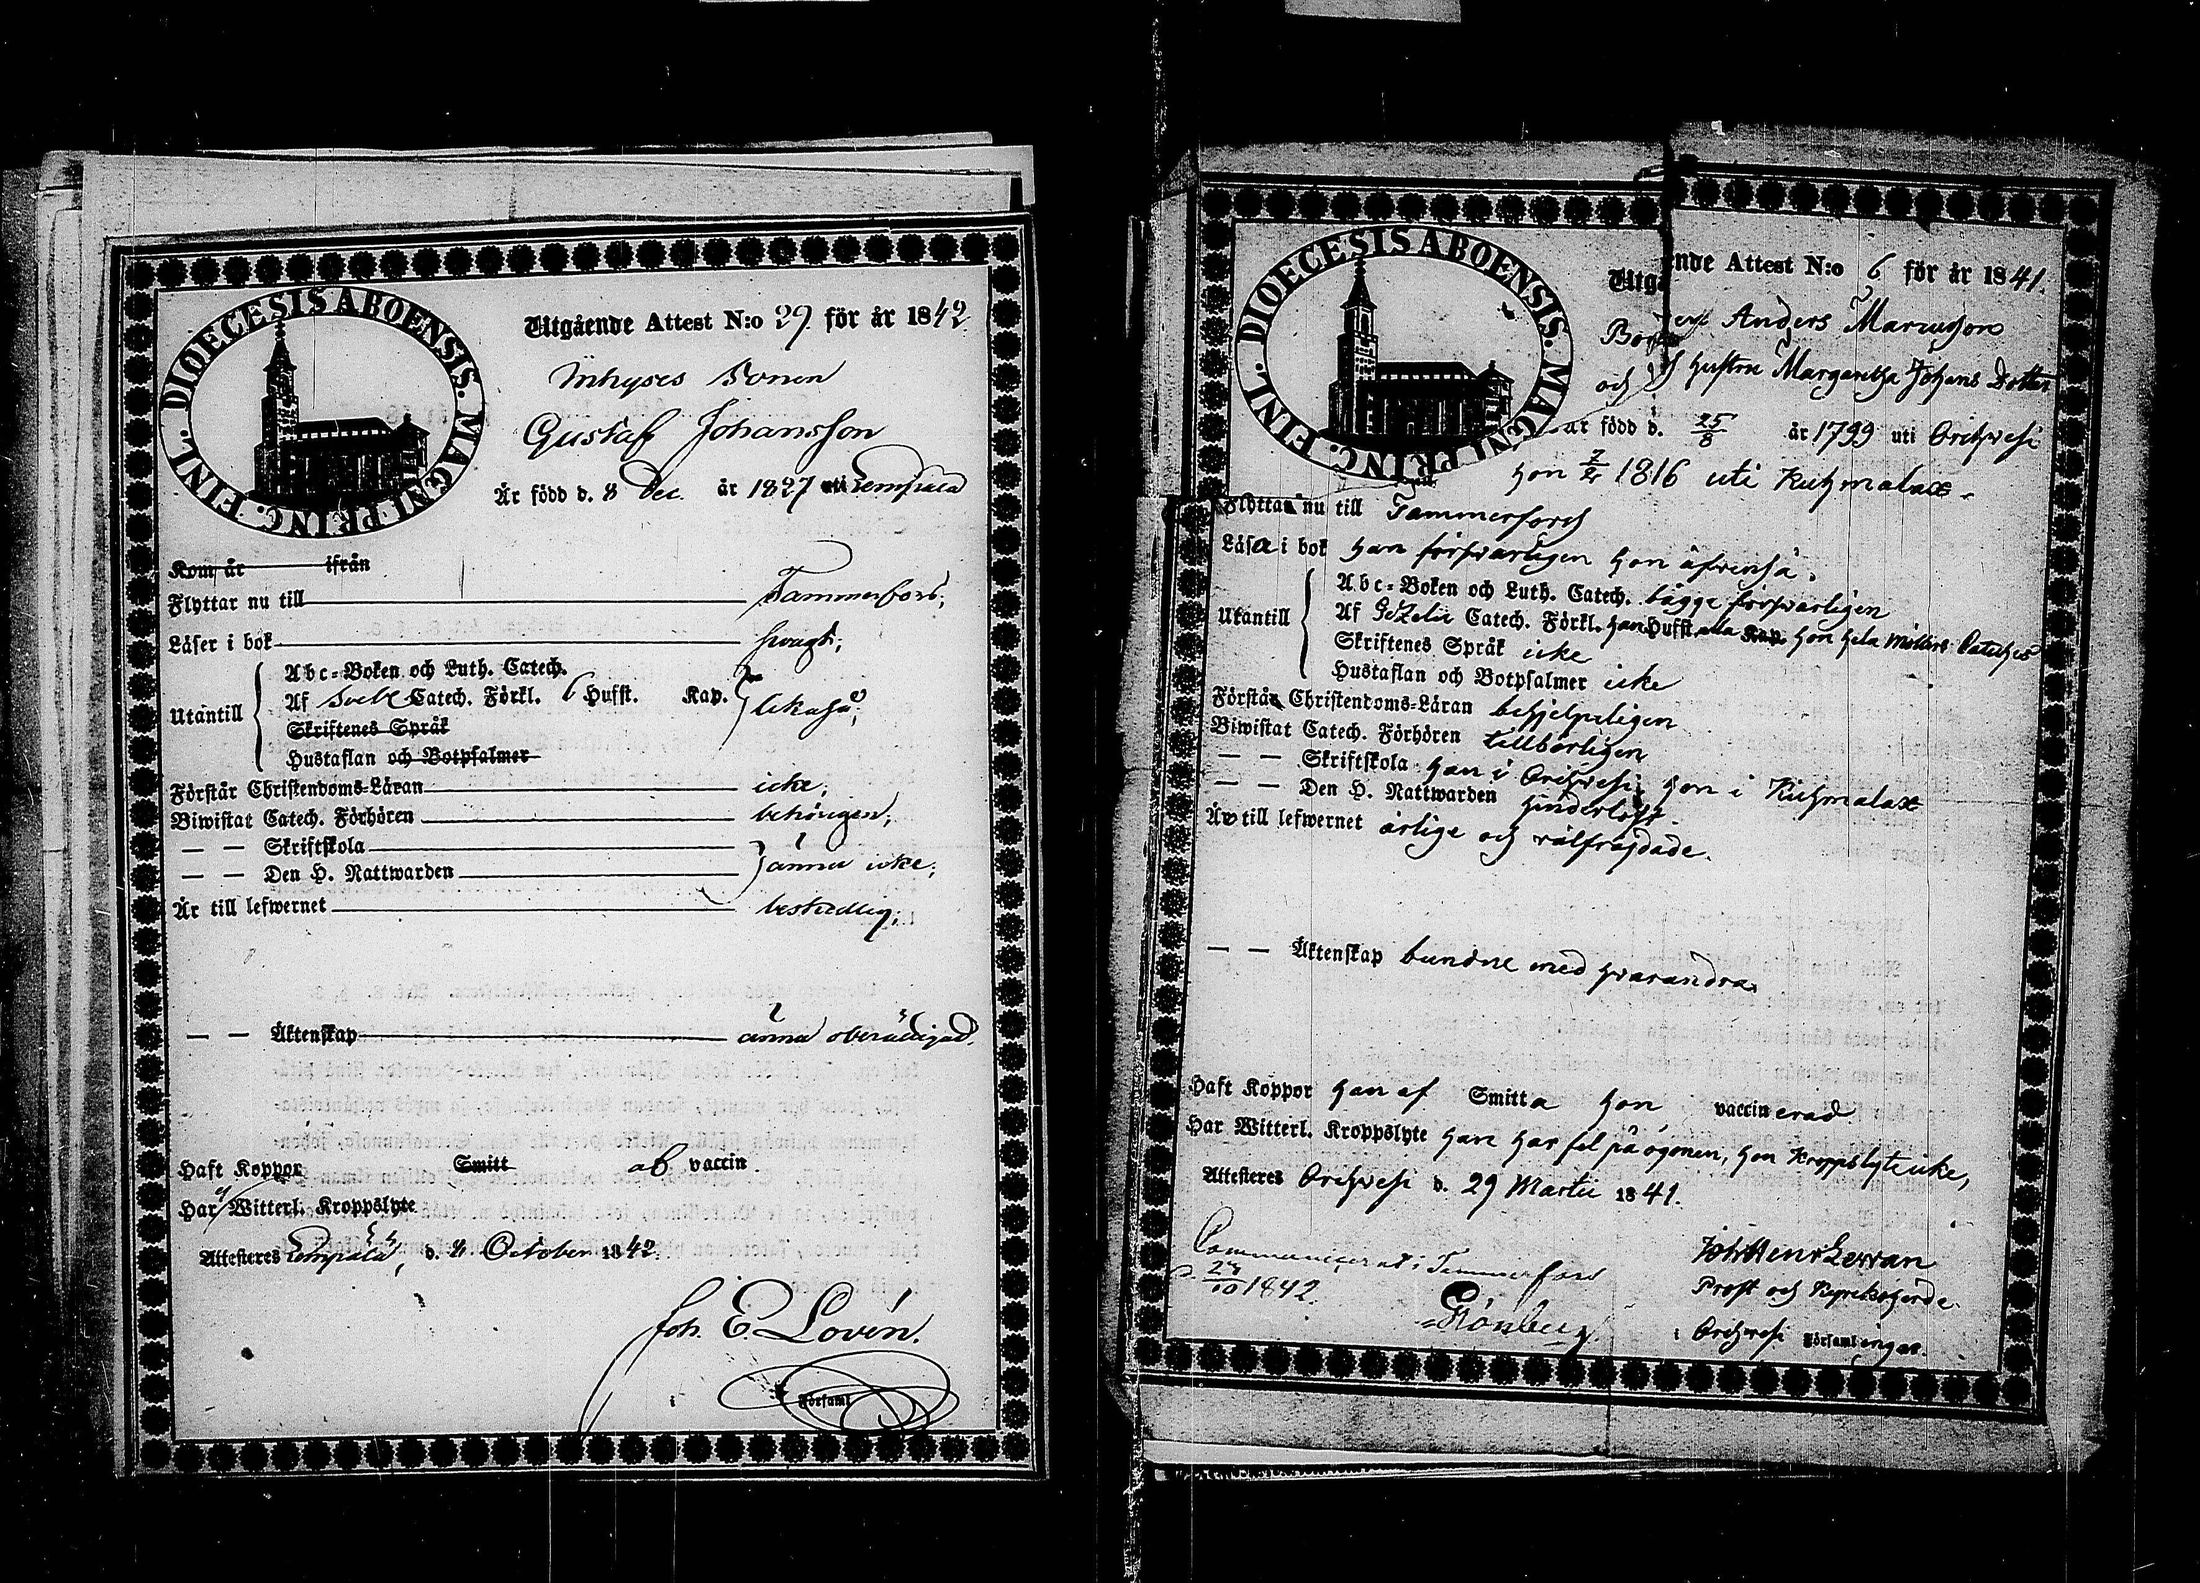 DIOECESIS ABOENSIS. MAGNI PRINC. FINL.
Utgående Attest N:o 29 för år 1842.
Inhyses Sonen
Gustaf Johansson
Är född d. 8 Dec. år 1827 uti Lempälä
Kom år ifrån
Flyttar nu till Tammerfors;
Läser i bok svagt;
Utantill
Abc-Boken och Luth. Catech.
Af Sveb. Catech. Förkl. 6 Hufst. Kap.
likaså;
Skriftenes Språk
Hustaflan och Botpsalmer
Förstår Christendoms-Läran icke;
Biwistat Catech. Förhören behörigen;
— — Skriftskola
— — Den H. Nattwarden
ännu icke;
Är till lefwernet beskedlig;
— — Äktenskap ännu obesvärjad.
Haft Koppor Smitt vaccin
Har Witterl. Kroppslyte
Attesteres Lempälä, d. 8 October 1842.
Joh. E. Lovén.
Församl
DIOECESIS ABOENSIS. MAGNI PRINC. FINL.
Utgående Attest N:o 6 för år 1841.
Anders Marcusson
och Hustru Margaretha Johans Dotter
är född d. 25/8 år 1799 uti Orihvesi
hon 1816 uti Kuhmalax.
Flyttar nu till Tammerfors
Läsa i bok han försvarligen hon äfvenså.
Utantill
Abc-Boken och Luth. Catech. bägge försvarligen
Af Gezelii Catech. Förkl. han Hufst. alla Kap. hon hela Möllers Cateches
Skriftenes Språk icke
Hustaflan och Botpsalmer icke
Förstå Christendoms-Läran behjelpeligen
Biwistat Catech. Förhören tillbörligen
— — Skriftskola han i Orihvesi hon i Kuhmalax
— — Den H. Nattwarden hinderlöst.
Är till lefwernet ärlige och välfrägdade.
— — Äktenskap bundne med hvarandra.
Haft Koppor han af Smitta hon vaccinerad
Har Witterl. Kroppslyte han har fel på ögonen, hon Kroppslyte icke,
Attesteres Orihvesi d. 29 Martii 1841.
Communicerat i Tammerfors
1842.
Joh Henr
Prost och Kyrkoherde
i Orihvesi Församlingar.